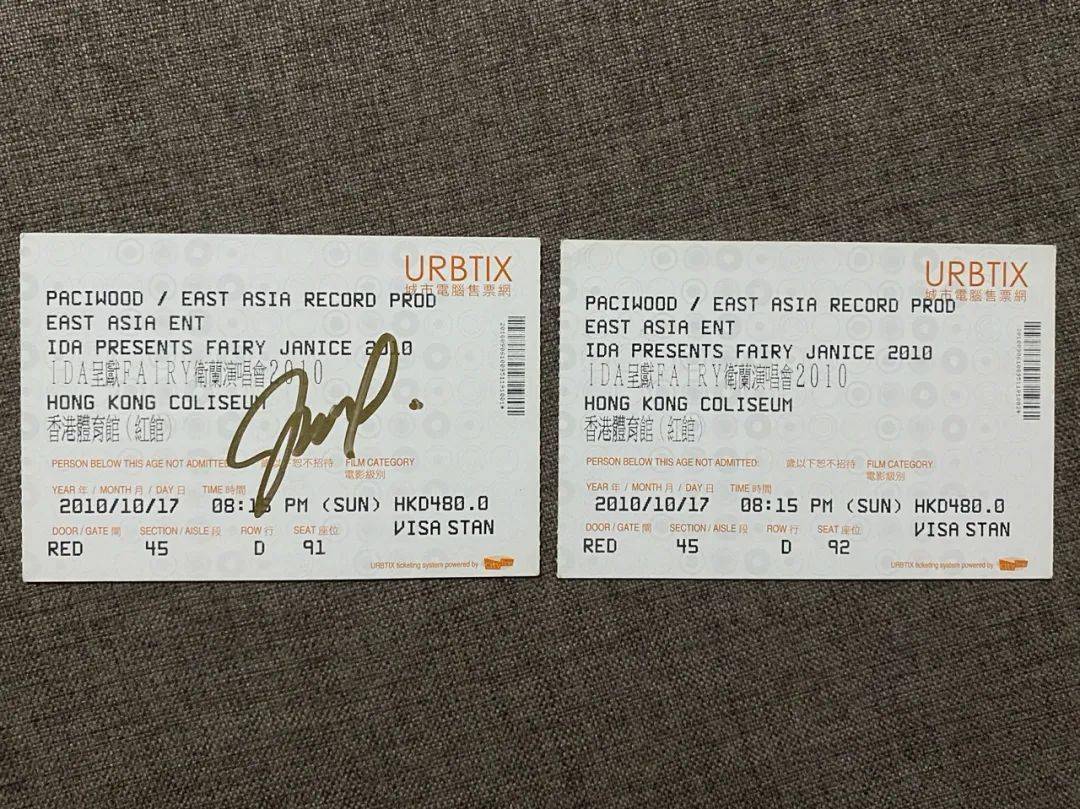 URBTIX
城市電腦售票網
PACIWOOD / EAST ASIA RECORD PROD
EAST ASIA ENT
IDA PRESENTS FAIRY JANICE 2010
IDA呈獻FAIRY衛蘭演唱會2010
HONG KONG COLISEUM
香港體育館（紅館）
PERSON BELOW THIS AGE NOT ADMITTED: 歲以下恕不招待 FILM CATEGORY
電影級別
YEAR 年 / MONTH 月 / DAY 日 TIME 時間
2010/10/17 08:15 PM (SUN) HKD480.0
VISA STAN
DOOR / GATE 閘 SECTION / AISLE 段 ROW 行 SEAT 座位
RED 45 D 91
URBTIX ticketing system powered by
URBTIX
城市電腦售票網
PACIWOOD / EAST ASIA RECORD PROD
EAST ASIA ENT
IDA PRESENTS FAIRY JANICE 2010
IDA呈獻FAIRY衛蘭演唱會2010
HONG KONG COLISEUM
香港體育館（紅館）
PERSON BELOW THIS AGE NOT ADMITTED: 歲以下恕不招待 FILM CATEGORY
電影級別
YEAR 年 / MONTH 月 / DAY 日 TIME 時間
2010/10/17 08:15 PM (SUN) HKD480.0
VISA STAN
DOOR / GATE 閘 SECTION / AISLE 段 ROW 行 SEAT 座位
RED 45 D 92
URBTIX ticketing system powered by